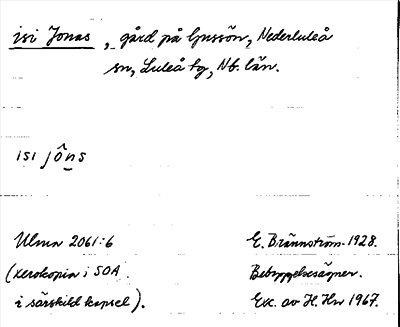 isi Jonas, gård på Gussön, Nederluleå
sn, Luleå tg, Nb. län.
isi jôns
Ulma 2061:6
E. Brännström. 1928.
(xerokopia i SOA
Bebyggelsesägner.
i särskild kapsel).
Exc. av H. Hn 1967.